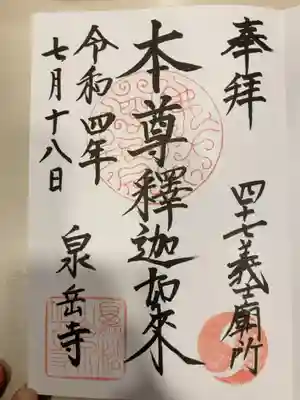 奉拝
四十七義士廟所
本尊釋迦如來
令和四年
七月十八日
泉岳寺